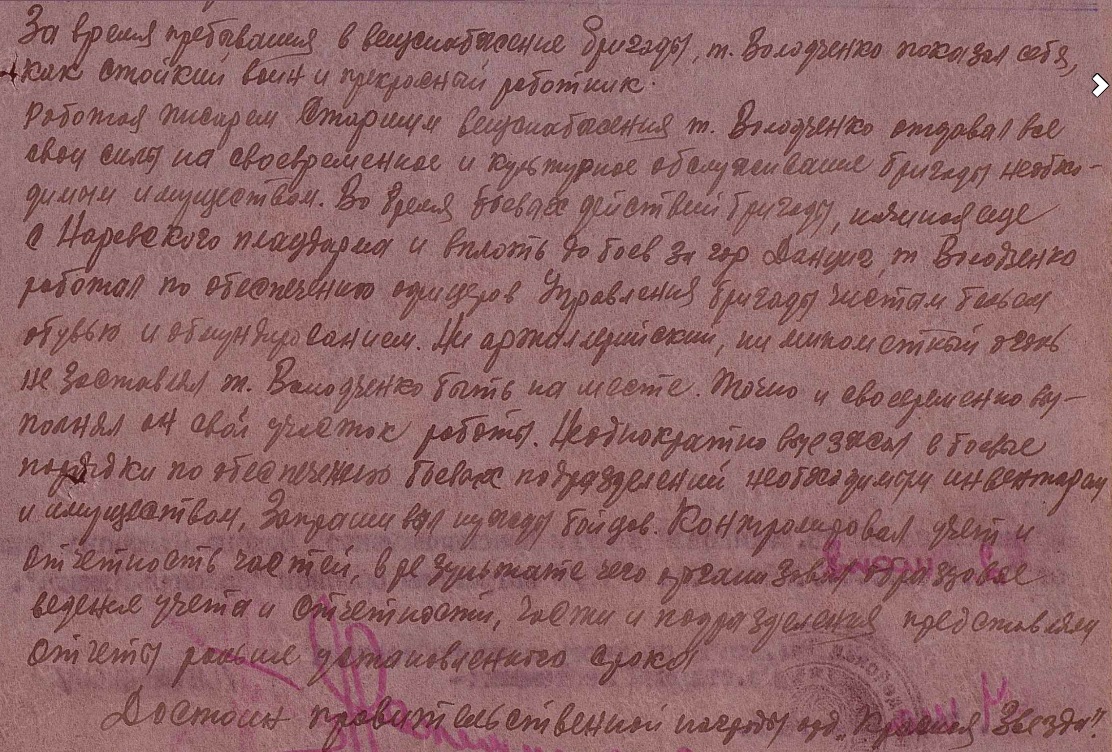 За время пребывания в вещснабжение бригады, т. Володченко показал себя,
как стойкий воин и прекрасный работник.
Работая писарем Старшим вещснабжения т. Володченко отдавал все
свои силы на своевременное и культурное обслуживание бригады необхо-
димым имуществом. Во время боевых действий бригады, начиная еще
с Наревского плацдарма и вплоть до боев за гор Данциг, т. Володченко
работал по обеспечению офицеров Управления бригады чистым бельем
обувью и обмундированием. Ни артиллерийский, ни минометный огонь
не заставлял т. Володченко быть на месте. Точно и своевременно вы-
полнял он свой участок работы. Неоднократно выезжал в боевые
порядки по обеспечению боевых подразделений необходимым инвентарем
и имуществом, Запрашивал нужды бойцов. Контролировал учет и
отчетность частей, в результате чего организовал образцовое
ведение учета и отчетности, части и подразделения представляли
отчеты раньше установленного срока
Достоин правительственной награды орд. "Красная Звезда".